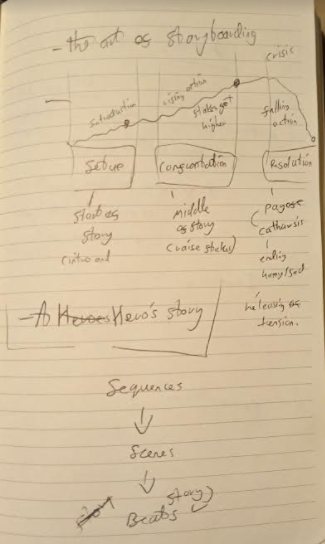 - the art of storyboarding
crisis
introduction
rising action
stakes get
higher
falling
action
Setup
Confrontation
Resolution
start of
story
middle
of story
(raise stakes)
payoff
catharsis
ending
happy/sad
releasing of
tension.
- A Heroes Hero's story
Sequences
Scenes
story
Beats